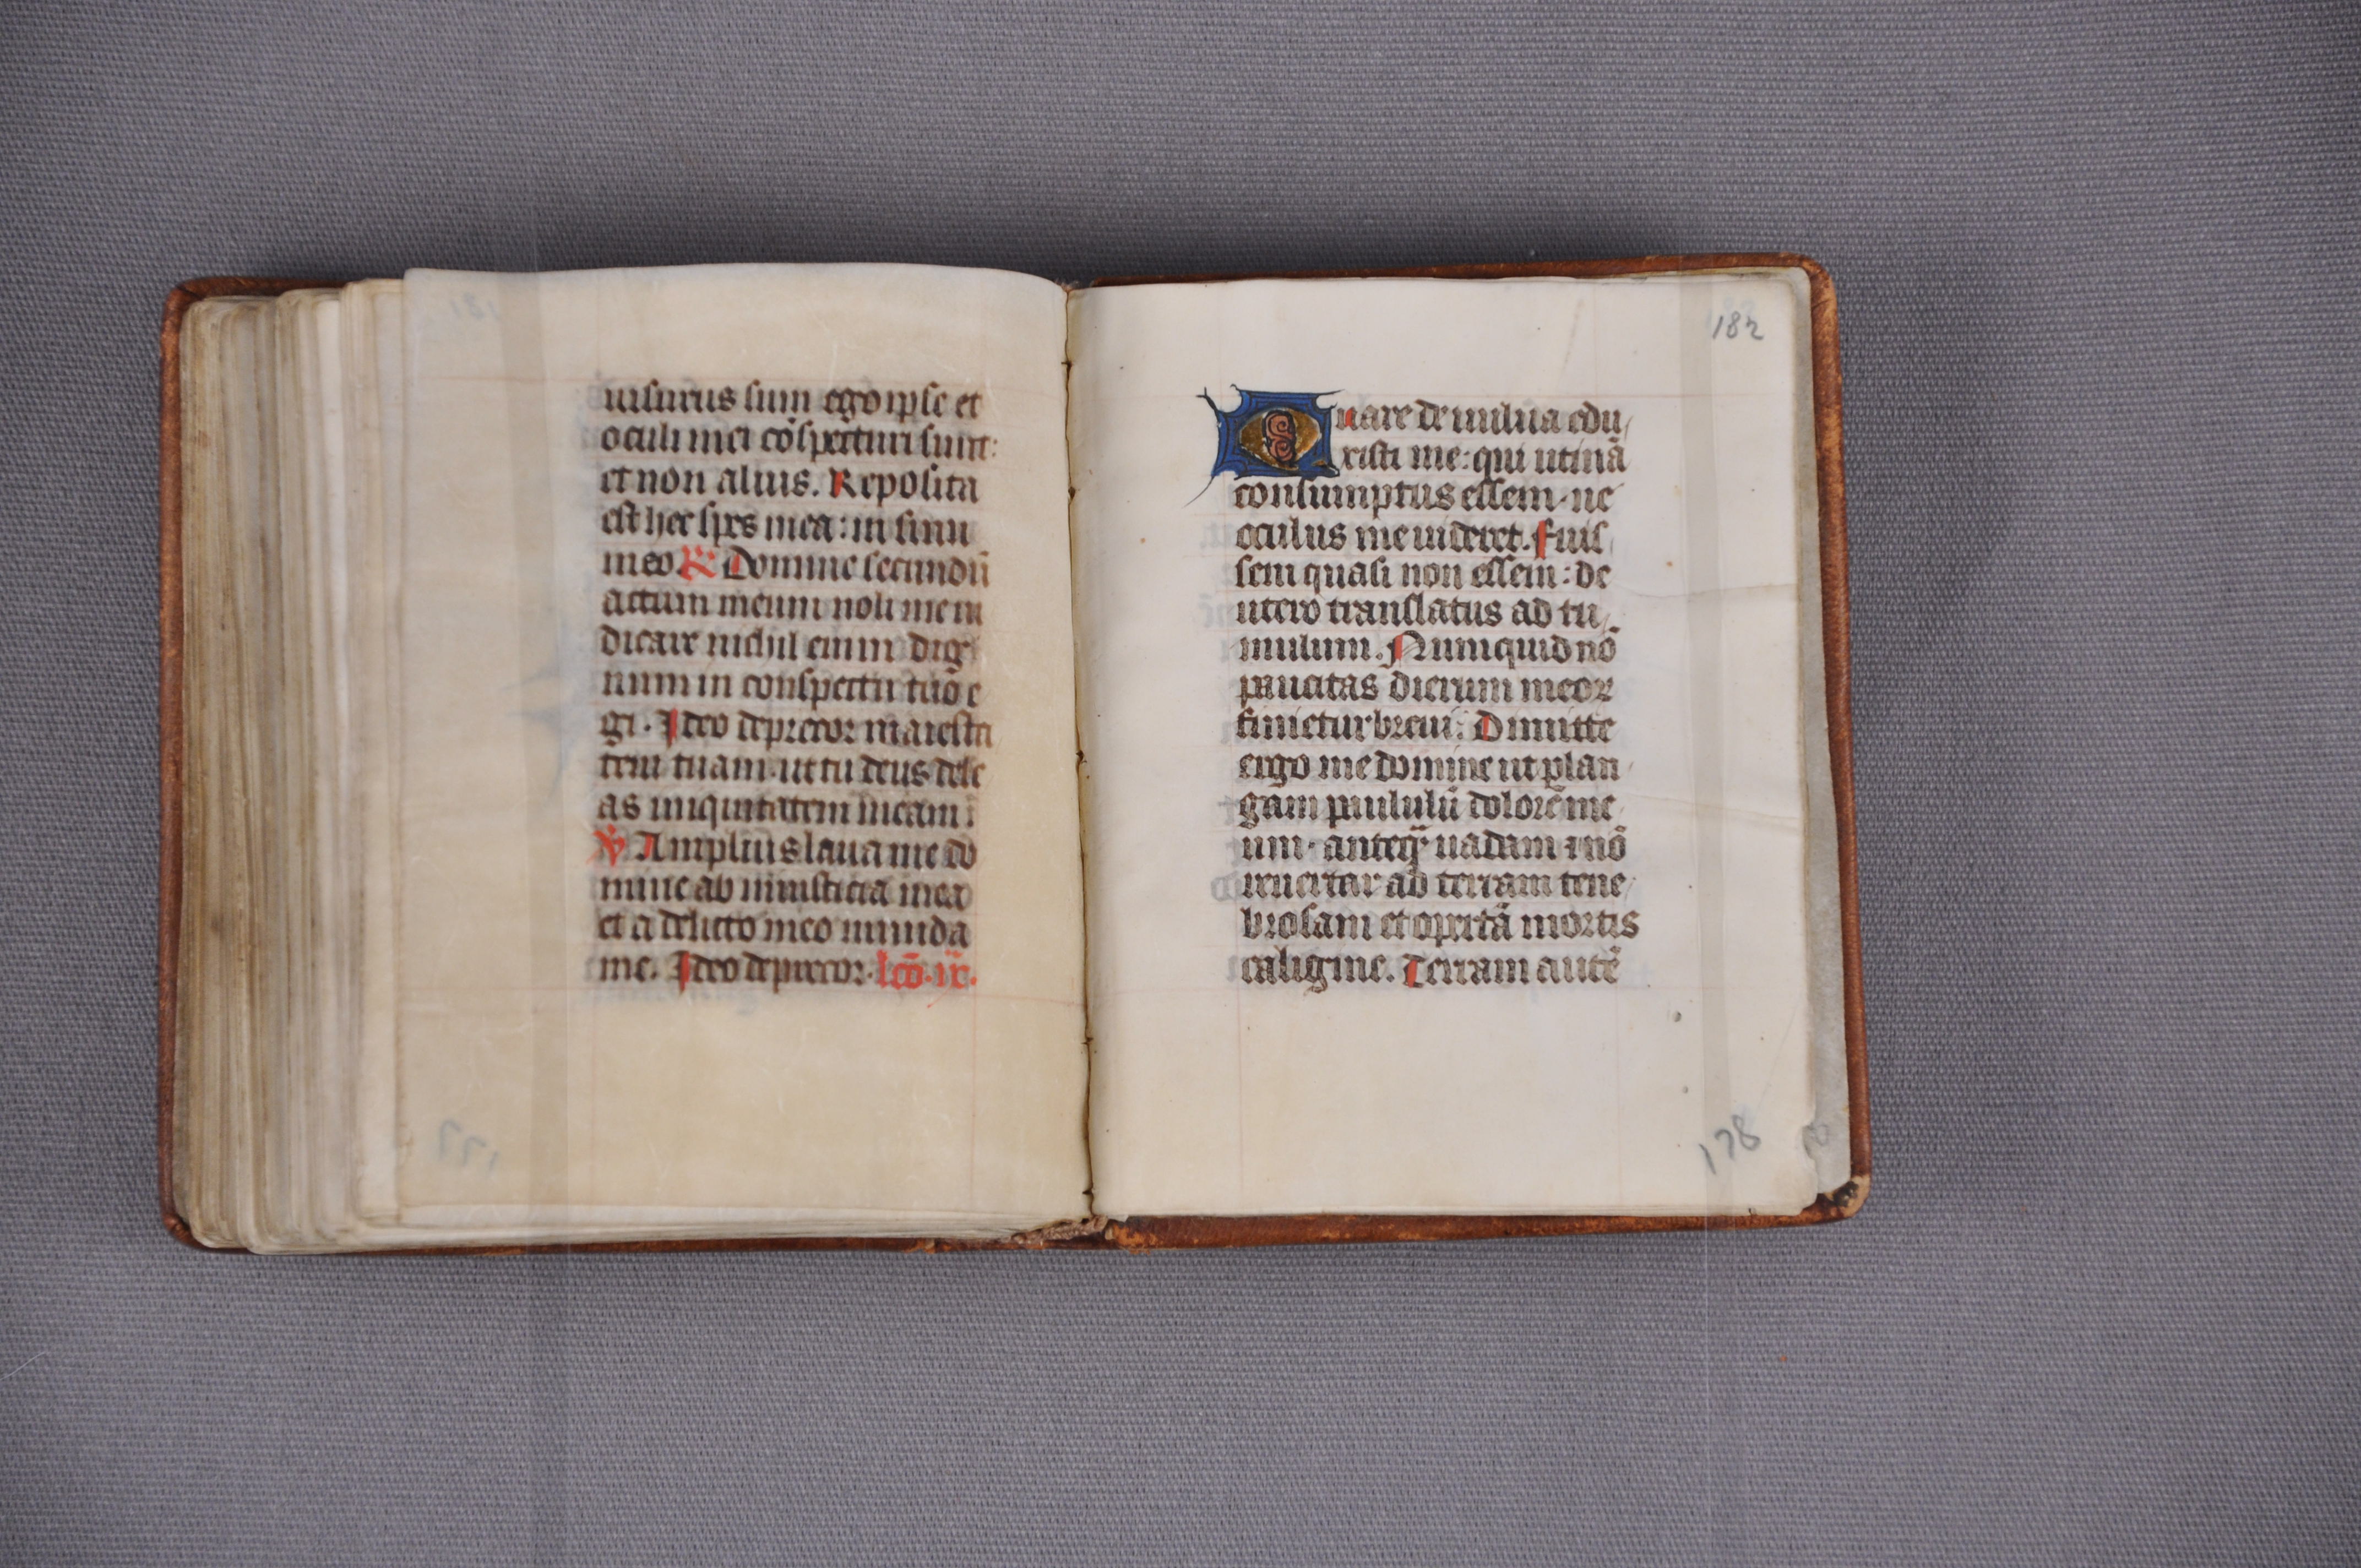 uisurus sum ego ipse et
oculi mei cōspecturi sunt:
et non alius. Reposita
est hec spes mea: in sinu
meo ℟ Domine secundū
actum meum noli me iu
dicare nichil enim dig
num in conspectu tuo e
gi. Ideo deprecor maiesta
tem tuam. ut tu deus dele
as iniquitatem meam:
℣ Amplius laua me do
mine ab iniusticia mea
et a delicto meo munda
me. Ideo deprecor. lc̄o. ix.
182
Quare de uulua edu
xisti me: qui utinā
consumptus essem. ne
oculus me uideret. Fuis
sem quasi non essem: de
utero translatus ad tu
mulum. Numquid nō
paucitas dierum meoꝝ
finietur breui: Dimitte
ergo me domine ut plan
gam paululū dolorē me
um. anteq̄ uadam ⁊ nō
reuertar ad terram tene
brosam et opertā mortis
caligine. Terram autē
178